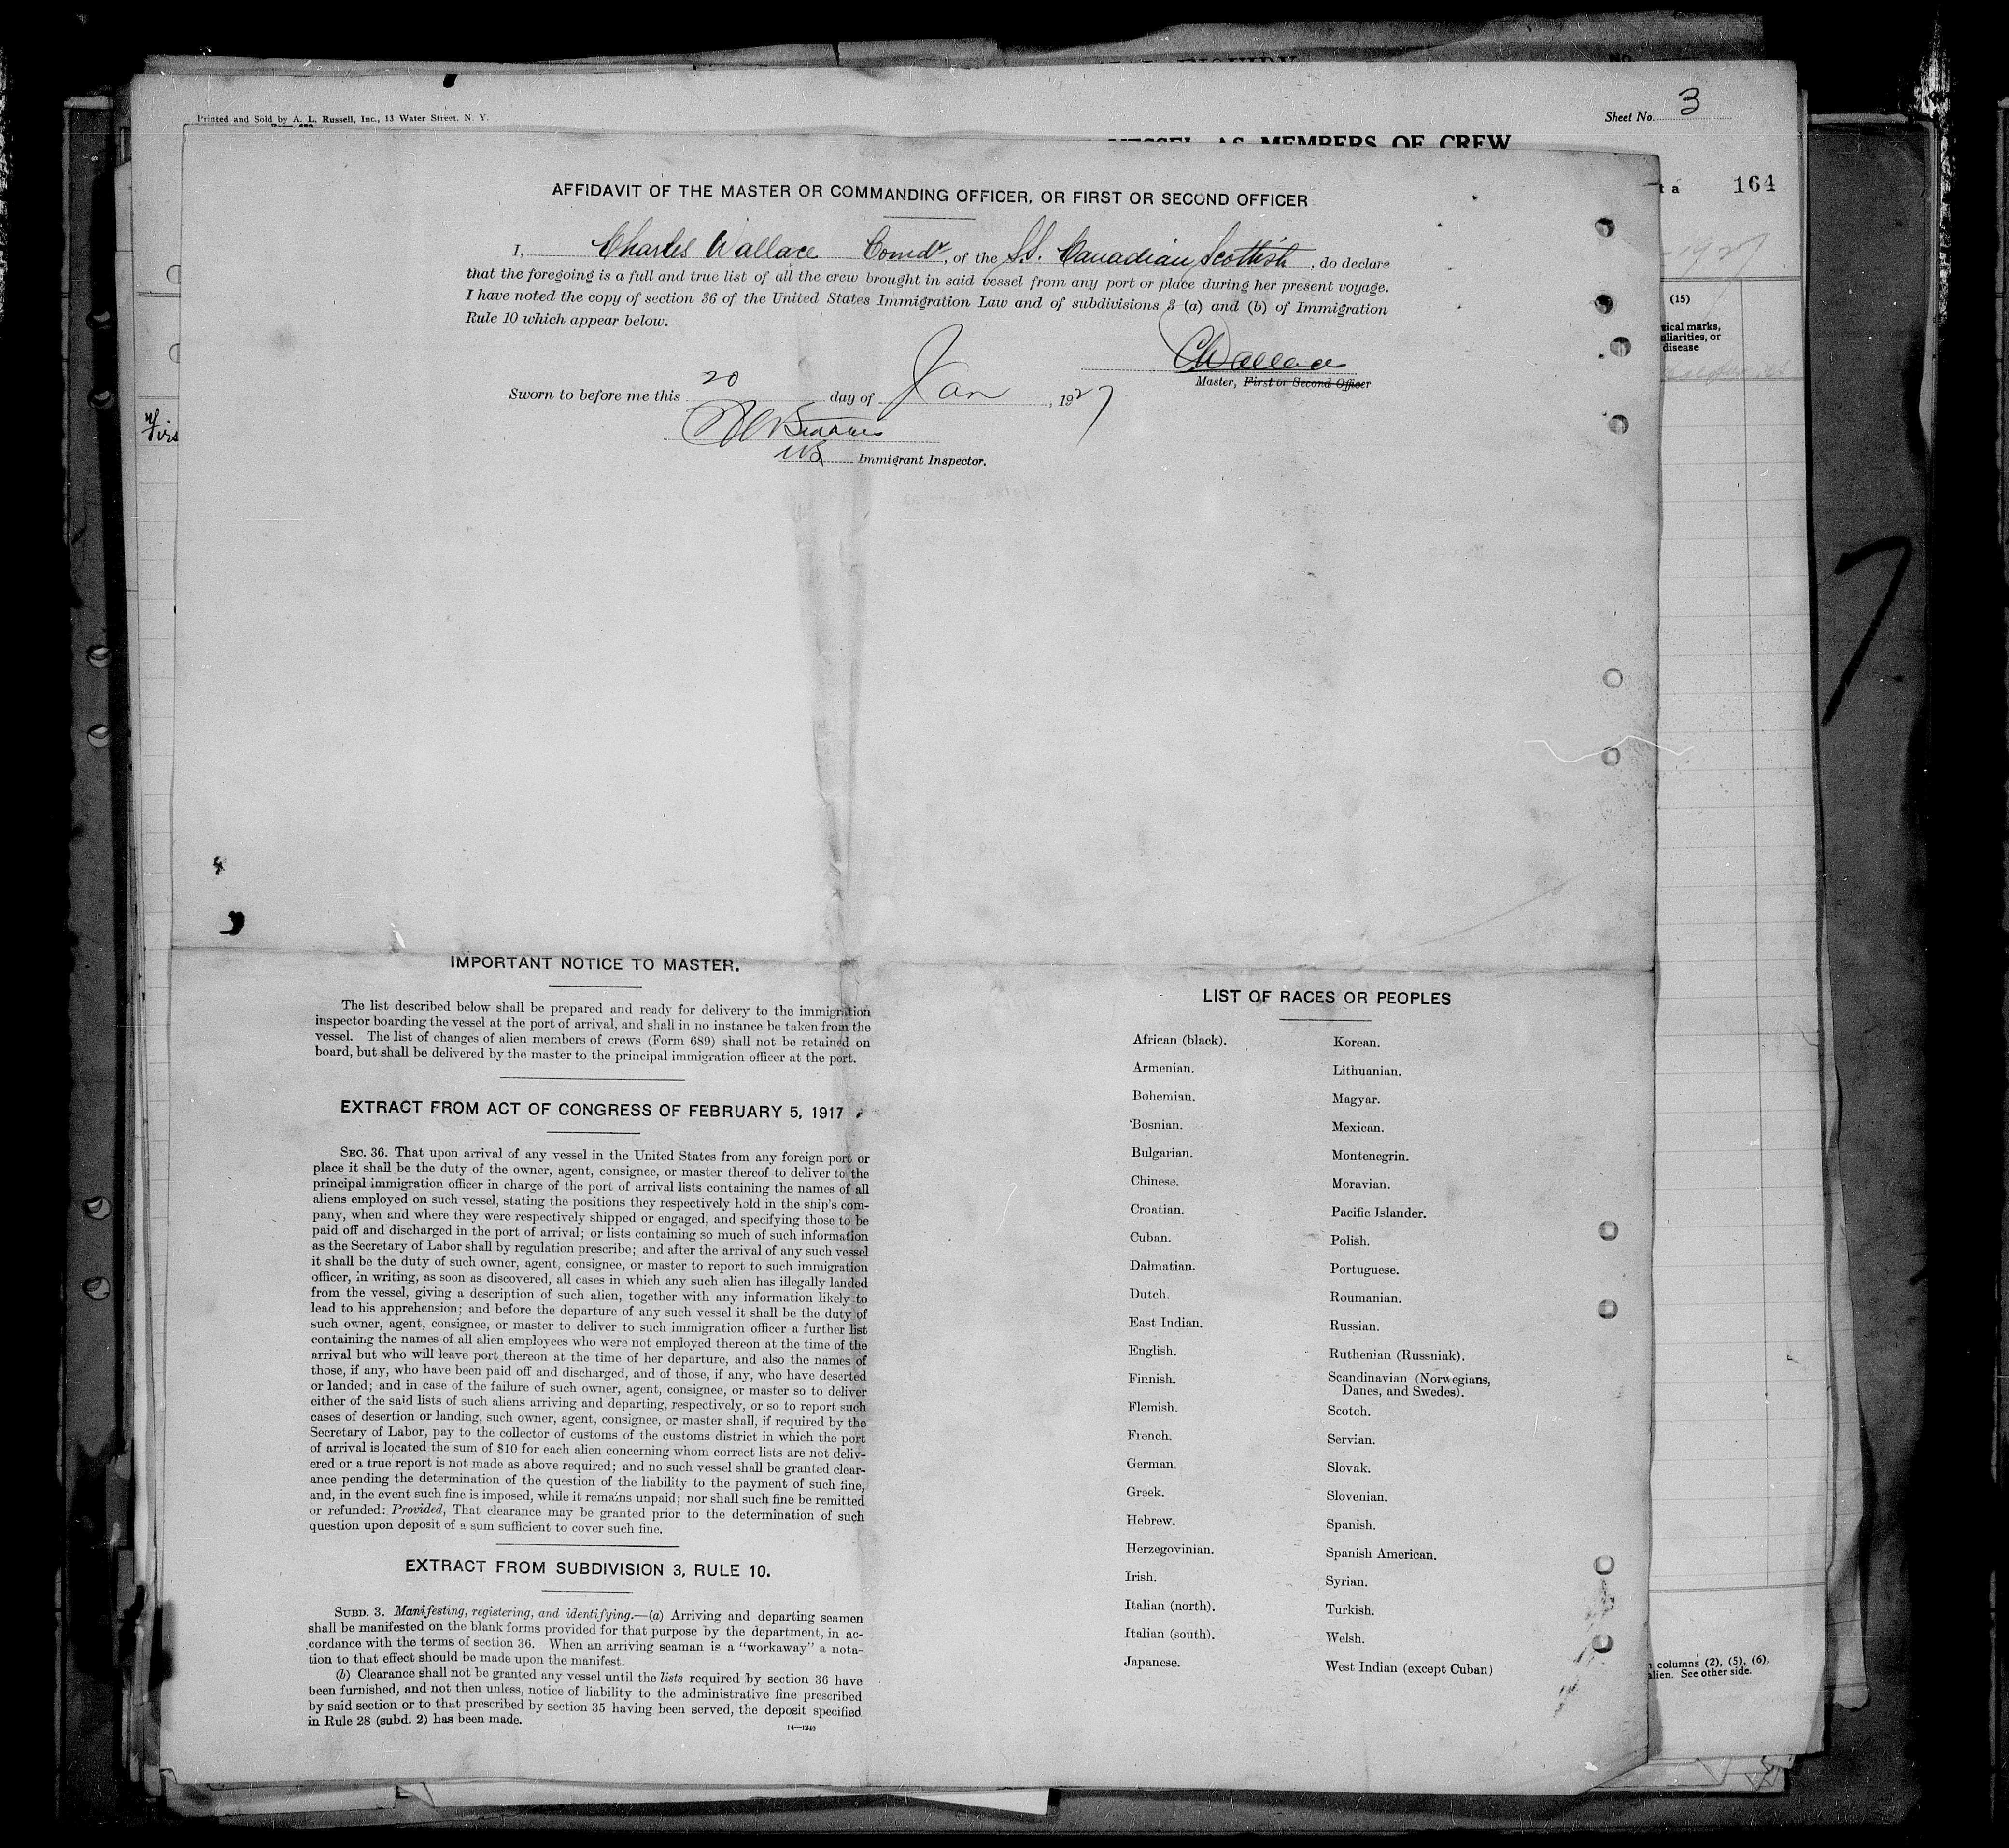 Printed and Sold by A. L. Russell, Inc., 13 Water Street, N. Y.
Sheet No. 3
VESSEL AS MEMBERS OF CREW
164
1927
(15)
sical marks,
uliarities, or
disease
Firs
AFFIDAVIT OF THE MASTER OR COMMANDING OFFICER, OR FIRST OR SECOND OFFICER
I, Charles Wallace Comdr, of the S.S. Canadian Scottish, do declare
that the foregoing is a full and true list of all the crew brought in said vessel from any port or place during her present voyage.
I have noted the copy of section 36 of the United States Immigration Law and of subdivisions 3 (a) and (b) of Immigration
Rule 10 which appear below.
CWallace
Master, First or Second Officer
Sworn to before me this 20 day of Jan, 1927
US Immigrant Inspector.
IMPORTANT NOTICE TO MASTER.
The list described below shall be prepared and ready for delivery to the immigration
inspector boarding the vessel at the port of arrival, and shall in no instance be taken from the
vessel. The list of changes of alien members of crews (Form 689) shall not be retained on
board, but shall be delivered by the master to the principal immigration officer at the port.
EXTRACT FROM ACT OF CONGRESS OF FEBRUARY 5, 1917
SEC. 36. That upon arrival of any vessel in the United States from any foreign port or
place it shall be the duty of the owner, agent, consignee, or master thereof to deliver to the
principal immigration officer in charge of the port of arrival lists containing the names of all
aliens employed on such vessel, stating the positions they respectively hold in the ship's com-
pany, when and where they were respectively shipped or engaged, and specifying those to be
paid off and discharged in the port of arrival; or lists containing so much of such information
as the Secretary of Labor shall by regulation prescribe; and after the arrival of any such vessel
it shall be the duty of such owner, agent, consignee, or master to report to such immigration
officer, in writing, as soon as discovered, all cases in which any such alien has illegally landed
from the vessel, giving a description of such alien, together with any information likely to
lead to his apprehension; and before the departure of any such vessel it shall be the duty of
such owner, agent, consignee, or master to deliver to such immigration officer a further list
containing the names of all alien employees who were not employed thereon at the time of the
arrival but who will leave port thereon at the time of her departure, and also the names of
those, if any, who have been paid off and discharged, and of those, if any, who have deserted
or landed; and in case of the failure of such owner, agent, consignee, or master so to deliver
either of the said lists of such aliens arriving and departing, respectively, or so to report such
cases of desertion or landing, such owner, agent, consignee, or master shall, if required by the
Secretary of Labor, pay to the collector of customs of the customs district in which the port
of arrival is located the sum of $10 for each alien concerning whom correct lists are not deliv-
ered or a true report is not made as above required; and no such vessel shall be granted clear-
ance pending the determination of the question of the liability to the payment of such fine,
and, in the event such fine is imposed, while it remains unpaid; nor shall such fine be remitted
or refunded: Provided, That clearance may be granted prior to the determination of such
question upon deposit of a sum sufficient to cover such fine.
EXTRACT FROM SUBDIVISION 3, RULE 10.
SUBD. 3. Manifesting, registering, and identifying.—(a) Arriving and departing seamen
shall be manifested on the blank forms provided for that purpose by the department, in ac-
cordance with the terms of section 36. When an arriving seaman is a "workaway" a nota-
tion to that effect should be made upon the manifest.
(b) Clearance shall not be granted any vessel until the lists required by section 36 have
been furnished, and not then unless, notice of liability to the administrative fine prescribed
by said section or to that prescribed by section 35 having been served, the deposit specified
in Rule 28 (subd. 2) has been made.
14—1240
LIST OF RACES OR PEOPLES
African (black).
Armenian.
Bohemian.
Bosnian.
Bulgarian.
Chinese.
Croatian.
Cuban.
Dalmatian.
Dutch.
East Indian.
English.
Finnish.
Flemish.
French.
German.
Greek.
Hebrew.
Herzegovinian.
Irish.
Italian (north).
Italian (south).
Japanese.
Korean.
Lithuanian.
Magyar.
Mexican.
Montenegrin.
Moravian.
Pacific Islander.
Polish.
Portuguese.
Roumanian.
Russian.
Ruthenian (Russniak).
Scandinavian (Norwegians,
Danes, and Swedes).
Scotch.
Servian.
Slovak.
Slovenian.
Spanish.
Spanish American.
Syrian.
Turkish.
Welsh.
West Indian (except Cuban)
columns (2), (5), (6),
alien. See other side.